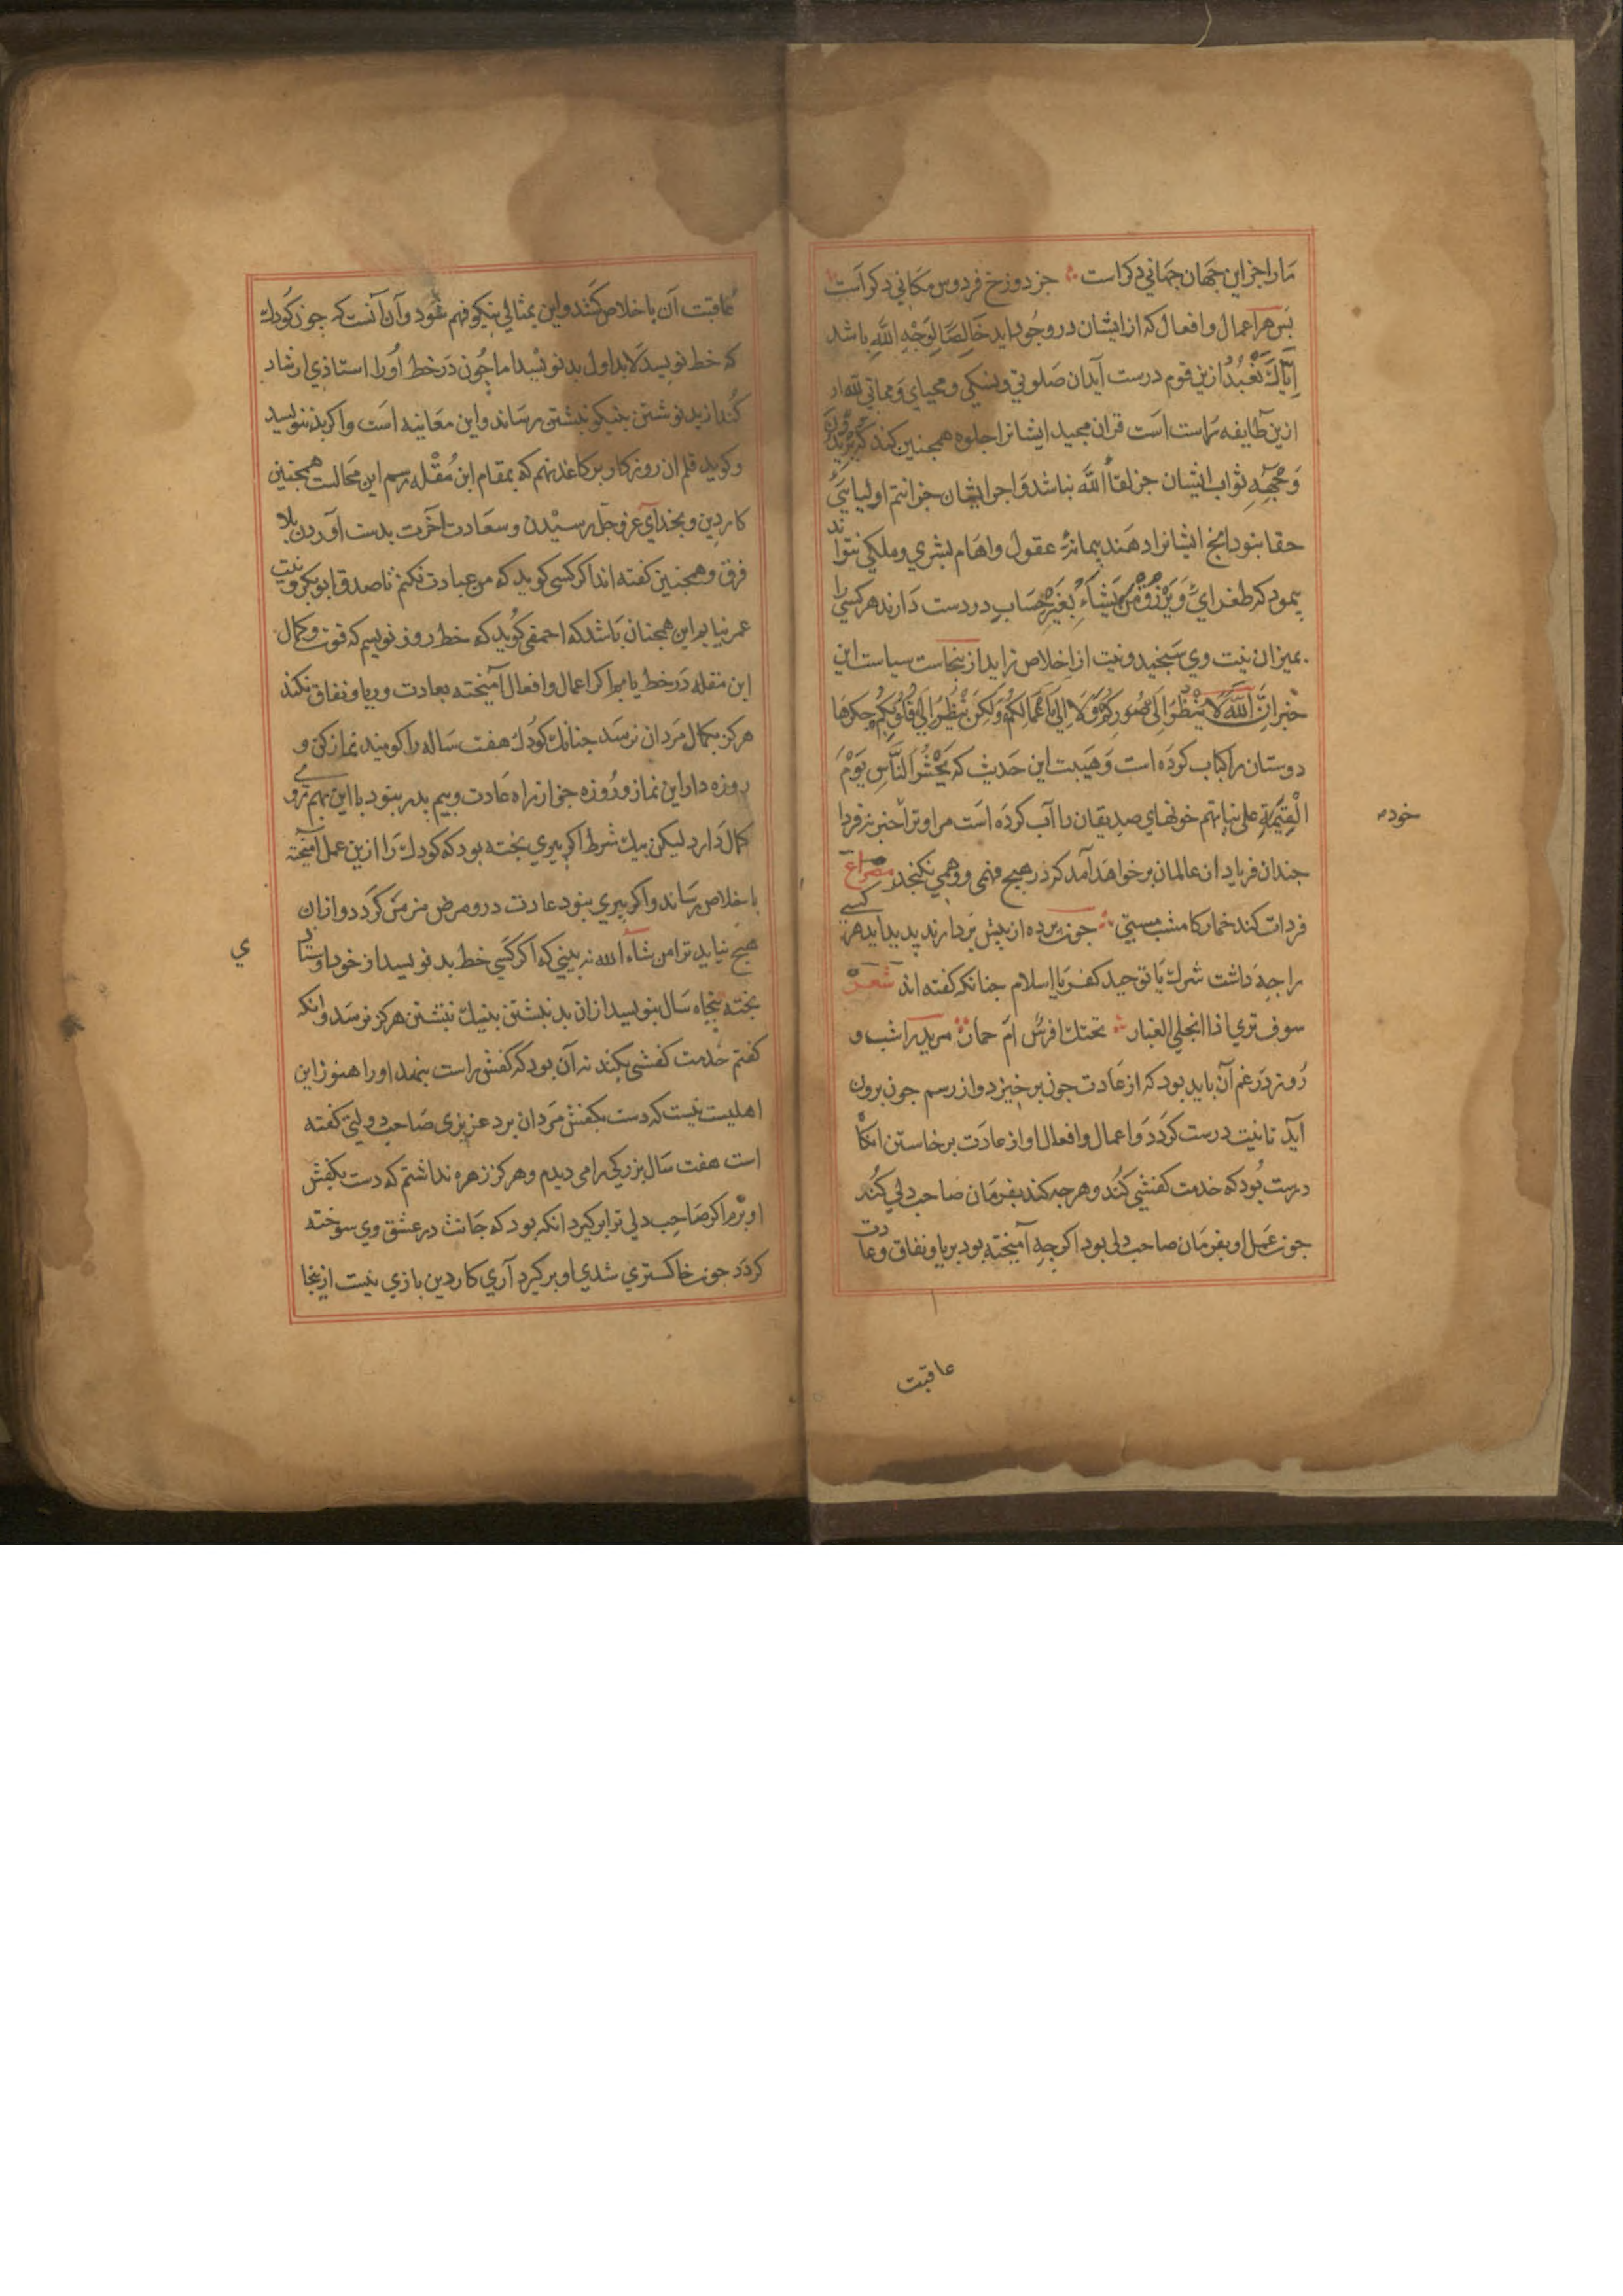 مارا جز این جهان جهانی دکر است جز دوزخ فردوس مکانی دکر است
بس هر اعمال و افعال که از ایشان در وجود اید خَالِصًا لِوَجْهِ اللَّهِ باشد
اِیَّاكَ نَعْبُدُ ازین قوم درست آید ان صلوتی و نسکی و محیای و مماتی لله از
ازین طایفه راست است قران مجید ایشانرا جلوه همجنین کند که یُرِیدُونَ
وَجْهَهُ ثواب ایشان جز لقاُ اللَّه نباشد و اجر ایشان جز انتم اولیایی
حقا نبود انج ایشانرا دهند بیمانهٔ عقول و اهام بشری و ملکی نتواند
بیمود که طغرای وَیَرْزُقُ مَنْ یَشَاءُ بِغَیْرِ حِسَابٍ در دست دارند هر کسی را
بمیزان نیت وی سنجید و نیت از اخلاص زاید از ینجاست سیاست این
خبر اِنَّ اللَّهَ لَا یَنْظُرُ اِلَی صُوَرِکُمْ وَلَا اِلَی اَعْمَالِکُمْ وَلَکِنْ یَنْظُرُ اِلَی قُلُوبِکُمْ جکرها
دوستان را کباب کرده است و هیبت این حدیث که یُحْشَرُ النَّاسِ یَوْمَ
الْقِیٰمَةِ علی نیاتهم خونهای صدیقان را آب کرده است مر او ترا خبر نه فردا
خود
جندان فریاد از عالمان بر خواهد آمد که در هیچ فهمی و وهمی نکنجد مصراع
فردات کند خمار کامشب مستی جون برده از بیش بردارند بدید اید هر کسی
را جه داشت شرك یا توحید کفر یا اسلام جنانکه کفته اند شعر
سوف تری اذا انجلی الغبار تحتك افرس ام حمار مرید را شب و
روز در غم آن باید بود که از عادت جون بر خیزد و از رسم جون برون
اید تا نیت درست کردد و اعمال و افعال او از عادت برخاستن انکاُ
درست بود که خدمت کفشی کند و هرجه کند بفرمان صاحب دلی کند
جون عمل او بفرمان صاحب دلی بود اکر جه آمیخته بود بریا و نفاق و عادت
عاقبت
عاقبت آن باخلاص کشد و این بمثالی نیکو فهم شود و آن آنست که جون کودك
که خط نویسد لابد اول بد نویسد اما جون در خط اورا استاذی ارشاد
کند از بد نوشتن بنیکو نبشتن رساند و این معاینه است و اکر بد ننویسد
و کوید قلم ان روز کار بر کاغذ نهم که بمقام ابن مُقْله رسم این محالست همجنین
کار دین و بخدای عز و جل رسیدن و سعادت آخرت بدست آوردن بلا
فرق و همجنین کفته اند اکر کسی کوید که من عبادت نکنم تا صدق ابو بکر و نیت
عمر نیابم این همجنان باشد که احمقی کوید که خط روز نویسم که قوت و کمال
ابن مقله در خط یابم و اکر اعمال و افعال آمیخته بعادت و ریا و نفاق نکند
هرکز بکمال مردان نرسد جنانك کودك هفت ساله را کویند نماز کن و
روزه دار این نماز و روزه جز از راه عادت و بیم بدر نبود با این بهم روی
کمال دارد لیکن بیك شرط اکر بیری بخته بود که کودك را ازین عمل آمیخته
باخلاص رساند و اکر بیری نبود عادت درو مرض مزمن کردد و از ان
هیج نیاید ترا من شاء الله نه بینی که اکر کسی خط بد نویسد از خود و استاد
ی
بخته بنجاه سال بنویسد از ان بد نبشتن بنیك نبشتن هرکز نرسد و انکه
کفتم خدمت کفشی بکند نه آن بود که کفش راست بنهد اورا هنوز این
اهلیت نیست که دست بکفش مردان برد عزیزی صاحب دولتی کفته
است هفت سال بزرکی را می دیدم و هرکز زهره نداشتم که دست بکفش
او برم اکر صاحب دلی ترا بر کیرد انکه بود که جانت در عشق وی سوخته
کردد جون خاکستری شدی او بر کیرد آری کار دین بازی نیست از ینجا